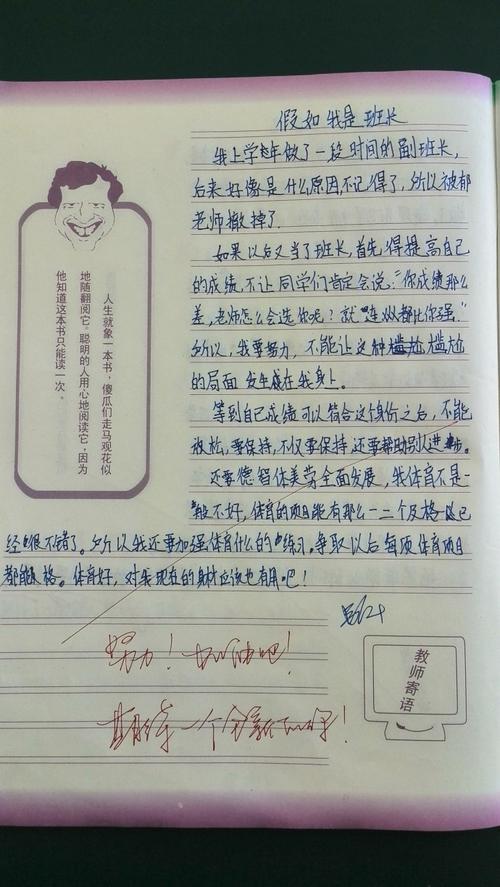 假如我是班长
我上学年做了一段时间的副班长，
后来好像是什么原因,不记得了,所以被郁
老师撤掉了.
如果以后又当了班长,首先得提高自己
的成绩,不让同学们肯定会说:"你成绩那么
差,老师怎么会选你呢？就 都比你强."
所以,我要努力,不能让这种尴尬尴尬
的局面发生在我身上。
等到自己成绩可以符合这个身份之后,不能
放松,要保持,不仅要保持,还要帮助别人进步。
还要德智体美劳全面发展,我体育不是一
般不好,体育的项目能有那么一二个及格 已
经很不错了。所以我还要加强体育什么的练习。争取以后每项体育项目
都能及格。体育好,对我现在的身材应该也有用吧！
努力！加油吧！
期待一个全新的 ！
人生就象一本书，傻瓜们走马观花似
地随翻阅它，聪明的人用心地阅读它，因为
他知道这本书只能读一次。
教师寄语